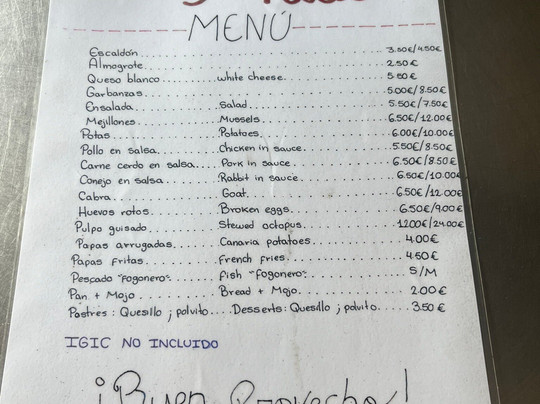 MENÚ
Escaldón 3.50€/4.50€
Almogrote 2.50€
Queso blanco white cheese 5.50€
Garbanzas 5.00€/8.50€
Ensalada Salad 5.50€/7.50€
Mejillones Mussels 6.50€/12.00€
Potas Potatoes 6.00€/10.00€
Pollo en salsa Chicken in sauce 5.50€/8.50€
Carne cerdo en salsa Pork in sauce 6.50€/8.50€
Conejo en salsa Rabbit in sauce 6.50€/10.00€
Cabra Goat 6.50€/12.00€
Huevos rotos Broken eggs 6.50€/9.00€
Pulpo guisado Stewed octopus 12.00€/24.00€
Papas arrugadas Canaria potatoes 4.00€
Papas fritas French fries 4.50€
Pescado "fogonero" fish "fogonero" S/M
Pan + Mojo Bread + Mojo 2.00€
Postres: Quesillo ; polvito Desserts: Quesillo ; polvito 3.50€
IGIC NO INCLUIDO
¡Buen Provecho!